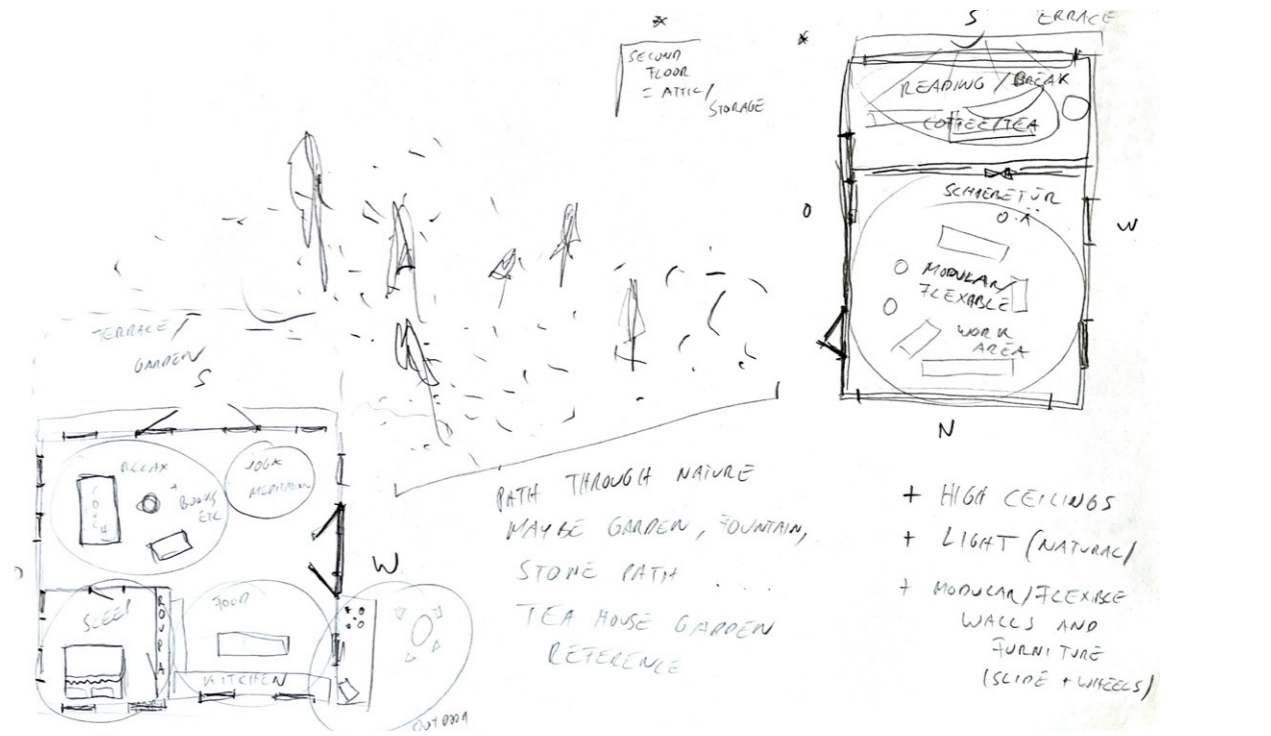 SECOND
FLOOR
= ATTIC/
STORAGE
S
ERRACE
READING/BREAK
COFFEE/TEA
SCHIEBETÜR
O.Ä
O
W
MODULAR/
FLEXABLE
WORK
AREA
N
TERRACE/
GARDEN
S
RELAX
+
BOOKS
ETC
YOGA
COUCH
W
SLEEP
ROUPA
FOOD
KITCHEN
OUTDOOR
PATH THROUGH NATURE
MAYBE GARDEN, FOUNTAIN,
STONE PATH ...
TEA HOUSE GARDEN
REFERENCE
+ HIGH CEILINGS
+ LIGHT (NATURAL)
+ MODULAR/FLEXIBLE
WALLS AND
FURNITURE
(SLIDE + WHEELS)